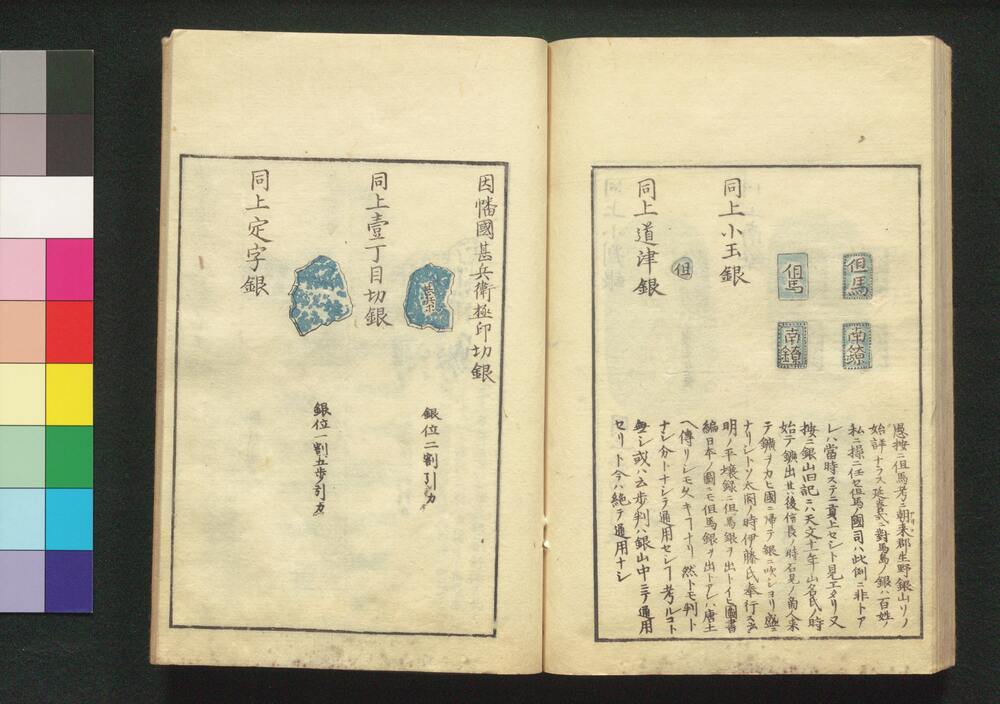 但馬
南鐐
但馬
南鐐
愚按ニ但馬考ニ朝来郡生野銀山リノ
始詳ナラス延喜式ニ對馬島ノ銀ハ百姓ノ
私ニ採ニ任セ但馬ノ國司ハ此例ニ非トア
レハ當時ステニ貢上セシト見エタリ又
按ニ銀山旧記ニハ天文十一年山名氏ノ時
始テ鑛出其後信長ノ時石見ノ商人来
テ鑛ヲカヒ國ニ帰テ銀ニ吹シヨリ盛ニ
ナリシトソ太閤ノ時伊藤氏奉行ス
明ノ平壌録ニ但馬銀ヲ出トイヒ圖書
編日本ノ圖ニモ但馬銀ヲ出トアレハ唐土
ヘ傳リシモ久キフナリ然トモ判ト
ナシ分トナシテ通用セシフ考ルコト
無シ或ハ五歩判ハ銀山中ニテ通用
セリト今ハ絶テ通用ナシ
同上小玉銀
同上道津銀
但
因幡國甚兵衛極印切銀
甚兵衛
銀位二割引カ
同上壹丁目切銀
銀位一割五歩引カ
同上定字銀